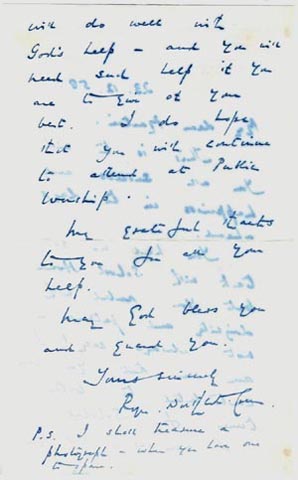 will do well with
God's help – and you will
need such help if you
are to give of your
best. I do hope
that you will continue
to attend at Public
Worship.
My grateful thanks
to you for all your
help.
May God bless you
and guard you.
Yours sincerely
P.S. I shall treasure a
photograph – when you have one
to spare.